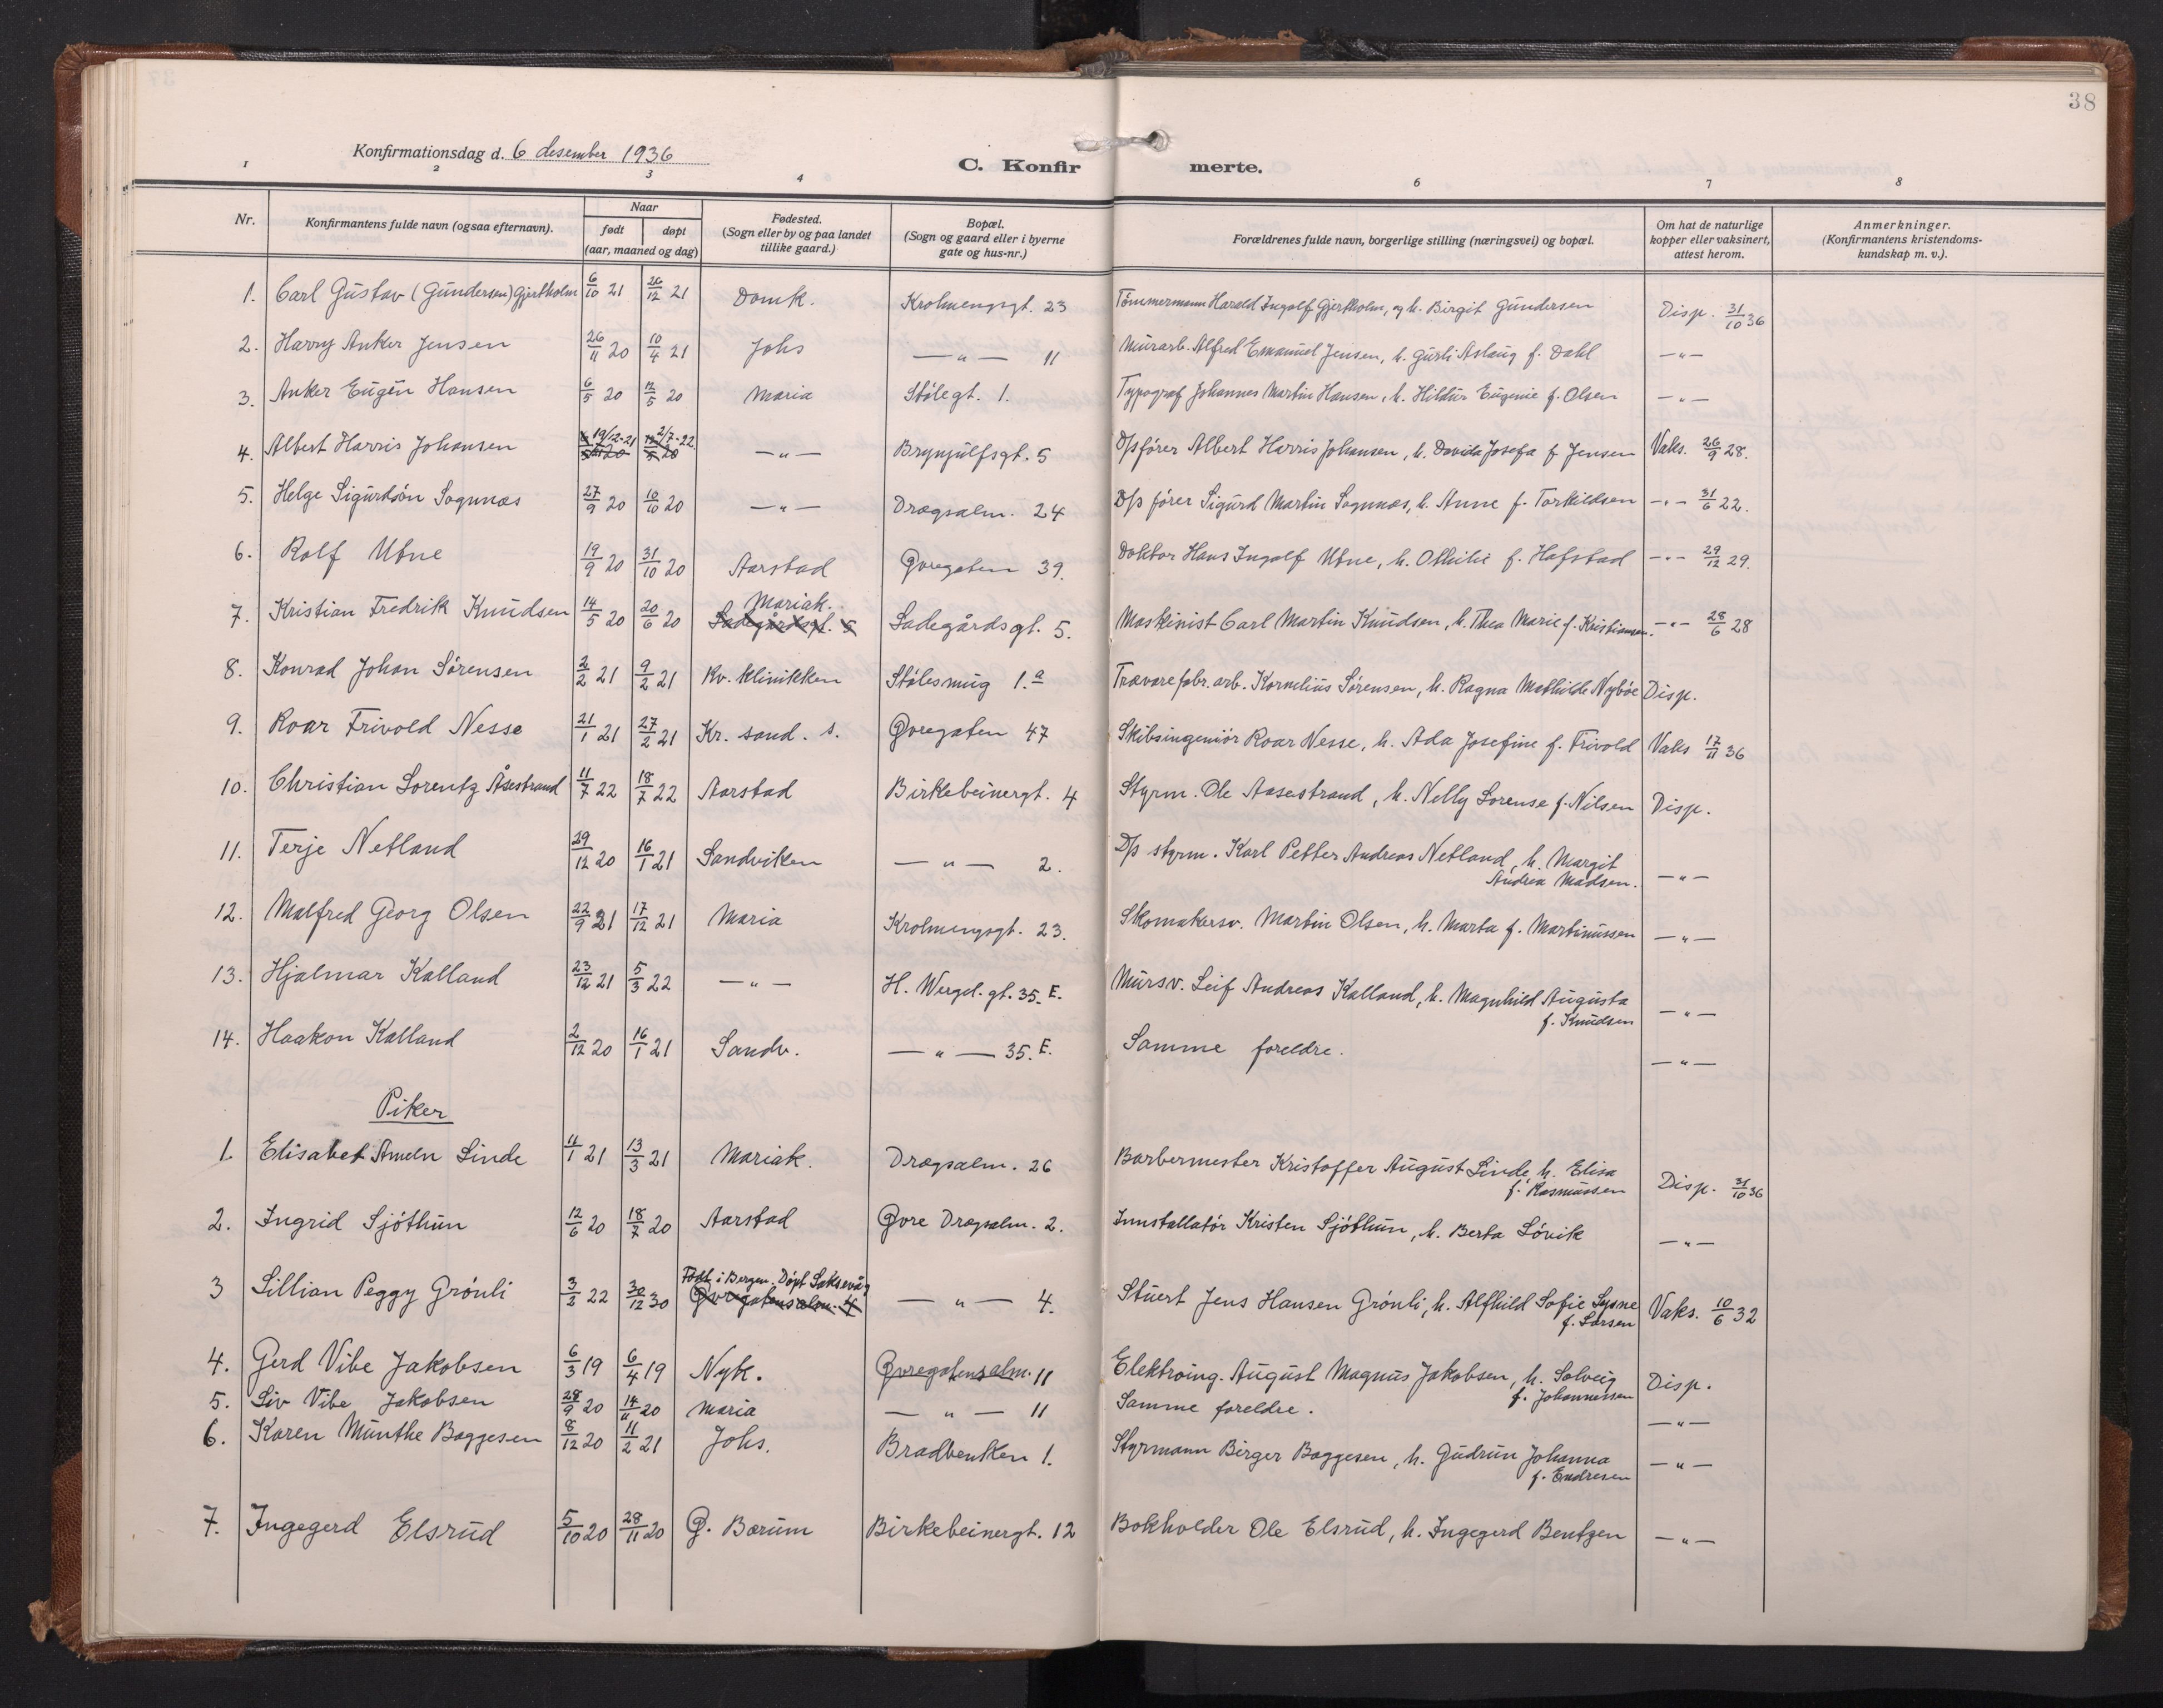 38
Konfirmationsdag d. 6 desember 1936
C. Konfirmerte.
1 2 3 4 6 7 8
Nr. | Konfirmantens fulde navn (ogsaa efternavn). | Naar født døpt (aar, maaned og dag) | Fødested. (Sogn eller by og paa landet tillike gaard.) | Bopæl. (Sogn og gaard eller i byerne gate og hus-nr.) | Forældrenes fulde navn, borgerlige stilling (næringsvei) og bopæl. | Om hat de naturlige kopper eller vaksinert, attest herom. | Anmerkninger. (Konfirmantens kristendoms-kundskap m. v.).
1. Carl Gustav (Gundersen) Gjertholm 6/10 21 26/12 21 Domk. Krohnengsgt. 23 Tømmermann Harald Ingolf Gjertholm, og h. Birgit Gundersen Disp. 31/10 36
2. Harry Anker Jensen 26/11 20 10/4 21 Johs —"— 11 Murarb. Alfred Emanuel Jensen, h. Gurli Aslaug f. Dahl —"—
3. Anker Eugén Hansen 6/5 20 12/5 20 Maria Stølegt. 1. Typograf Johannes Martin Hansen, h. Hildur Eugenie f. Olsen —"—
4. Albert Harris Johansen 19/12-21 2/7-22 —"— Brynjulfsgt. 5 D/s fører Albert Harris Johansen, h. Davida Josefa f. Jensen Vaks. 26/9 28.
5. Helge Sigurdsøn Sognnæs 27/9 20 10/10 20 —"— Dregsalm. 24 D/s fører Sigurd Martin Sognnæs, h. Anne f. Torkildsen —"— 31/6 22.
6. Rolf Utne 19/9 20 31/10 20 Aarstad Øvregaten 39. Doktor Hans Ingolf Utne, h. Othilie f. Hafstad —"— 29/12 29.
7. Kristian Fredrik Knudsen 14/5 20 20/6 20 Mariak. Ladegårdsgt. 5 Ladegårdsgt. 5. Maskinist Carl Martin Knudsen, h. Thea Marie f. Kristiansen. —"— 28/6 28
8. Konrad Johan Sørensen 2/2 21 9/2 21 Kv. klinikken Stølesmug 1.a Trævarefabr. arb. Kornelius Sørensen, h. Ragna Mathilde Nybøe Disp.
9. Roar Frivold Nesse 21/1 21 27/2 21 Kr. sand. s. Øvregaten 47 Skibsingeniør Roar Nesse, h. Ada Josefine f. Frivold Vaks 17/11 36
10. Christian Lorentz Åsestrand 11/7 22 18/7 22 Aarstad Birkebeinergt. 4 Styrm. Ole Aasestrand, h. Nelly Lorense f. Nilsen Disp.
11. Terje Netland 29/12 20 16/1 21 Sandviken —"— 2. D/s styrm. Karl Petter Andreas Netland, h. Margit
Andrea Madsen. —"—
12. Malfred Georg Olsen 22/9 21 17/12 21 Maria Krohnengsgt. 23. Skomakersv. Martin Olsen, h. Marta f. Martinussen —"—
13. Hjalmar Kalland 23/12 21 5/3 22 —"— H. Wergel. gt. 35. E. Mursv. Leif Andreas Kalland, h. Magnhild Augusta
f. Knudsen —"—
14. Haakon Kalland 2/12 20 16/1 21 Sandv. —"— 35. E. Samme foreldre. —"—
Piker
1. Elisabet Ameln Linde 11/1 21 13/3 21 Mariak. Dregsalm. 26 Barbermester Kristoffer August Linde, h. Elisa
f. Rasmussen Disp. 31/10 36
2. Ingrid Sjøthun 12/6 20 18/7 20 Aarstad Øvre Dregsalm. 2. Innstallatør Kristen Sjøthun, h. Berta Løvik —"—
3 Lillian Peggy Grønli 3/2 22 30/12 30 Født i Bergen. Døpt Laksevåg
Øvregatensalm. 4 —"— 4. Stuert Jens Hansen Grønli, h. Alfhild Sofie Sysne
f. Larsen Vaks. 10/6 32
4. Gerd Vibe Jakobsen 6/3 19 6/4 19 Nyk. Øvregatensalm. 11 Elektroing. August Magnus Jakobsen, h. Solveig
f. Johannessen Disp.
5. Liv Vibe Jakobsen 28/9 20 14/11 20 Maria —"— 11 Samme foreldre. —"—
6. Karen Munthe Baggesen 8/12 20 11/2 21 Johs. Bradbenken 1. Styrmann Birger Baggesen, h. Gudrun Johanna
f. Endresen —"—
7. Ingegerd Elsrud 5/10 20 28/11 20 Ø. Bærum Birkebeinergt. 12 Bokholder Ole Elsrud, h. Ingegerd Bentzen —"—